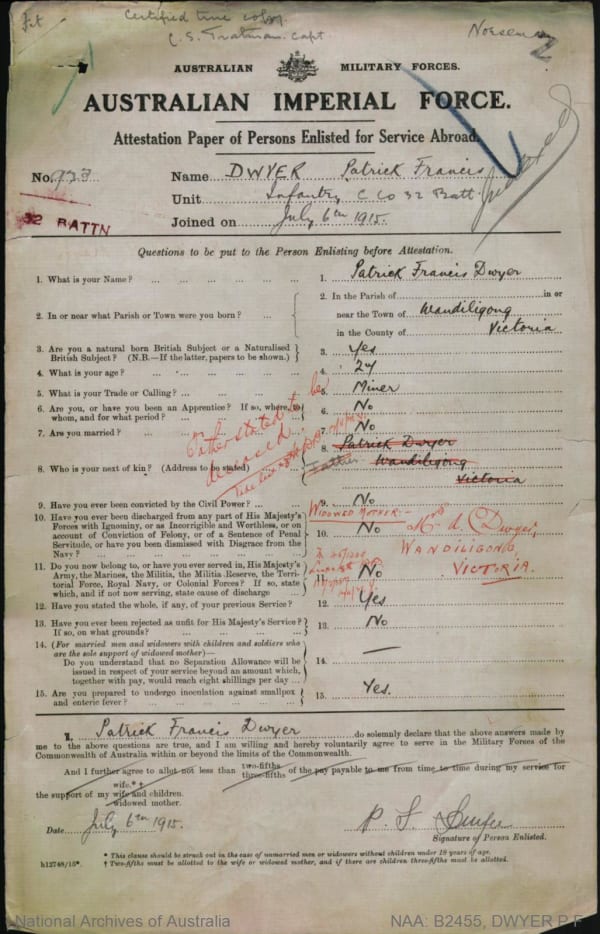 Certified true copy.
C. S. Tratman. Capt
AUSTRALIAN MILITARY FORCES.
AUSTRALIAN IMPERIAL FORCE.
Attestation Paper of Persons Enlisted for Service Abroad.
No. 933 Name DWYER Patrick Francis
Unit Infantry, C Co 32 Batt.
Joined on July 6th 1915.
32 BATTN
Questions to be put to the Person Enlisting before Attestation.
1. What is your Name? ... 1. Patrick Francis Dwyer
2. In or near what Parish or Town were you born? ... 2. In the Parish of in or
near the Town of Wandiligong
in the County of Victoria
3. Are you a natural born British Subject or a Naturalised
British Subject? (N.B.—If the latter, papers to be shown.) 3. Yes
4. What is your age? ... 4. 24
5. What is your Trade or Calling? ... 5. Miner
6. Are you, or have you been an Apprentice? If so, where, to
whom, and for what period? ... 6. No
7. Are you married? ... 7. No
8. Who is your next of kin? (Address to be stated) 8. Patrick Dwyer
Father Wandiligong
Victoria
Father stated to be
deceased.
9. Have you ever been convicted by the Civil Power? ... 9. No
WIDOWED MOTHER:-
Mrs A. Dwyer,
WANDILIGONG
VICTORIA.
10. Have you ever been discharged from any part of His Majesty's
Forces with Ignominy, or as Incorrigible and Worthless, or on
account of Conviction of Felony, or of a Sentence of Penal
Servitude, or have you been dismissed with Disgrace from the
Navy? ... 10. No
11. Do you now belong to, or have you ever served in, His Majesty's
Army, the Marines, the Militia, the Militia Reserve, the Terri-
torial Force, Royal Navy, or Colonial Forces? If so, state
which, and if not now serving, state cause of discharge 11. No
12. Have you stated the whole, if any, of your previous Service? 12. Yes
13. Have you ever been rejected as unfit for His Majesty's Service?
If so, on what grounds? ... 13. No
14. (For married men and widowers with children and soldiers who
are the sole support of widowed mother)—
Do you understand that no Separation Allowance will be
issued in respect of your service beyond an amount which,
together with pay, would reach eight shillings per day ... 14. —
15. Are you prepared to undergo inoculation against smallpox
and enteric fever? ... 15. Yes.
I, Patrick Francis Dwyer do solemnly declare that the above answers made by
me to the above questions are true, and I am willing and hereby voluntarily agree to serve in the Military Forces of the
Commonwealth of Australia within or beyond the limits of the Commonwealth.
And I further agree to allot not less than two-fifths three-fifths of the pay payable to me from time to time during my service for
wife.*†
the support of my wife and children.
widowed mother.
Date July 6th 1915. P. F. Dwyer
Signature of Person Enlisted.
h12748/15*.
* This clause should be struck out in the case of unmarried men or widowers without children under 18 years of age.
† Two-fifths must be allotted to the wife or widowed mother, and if there are children three-fifths must be allotted.
National Archives of Australia NAA: B2455, DWYER P F